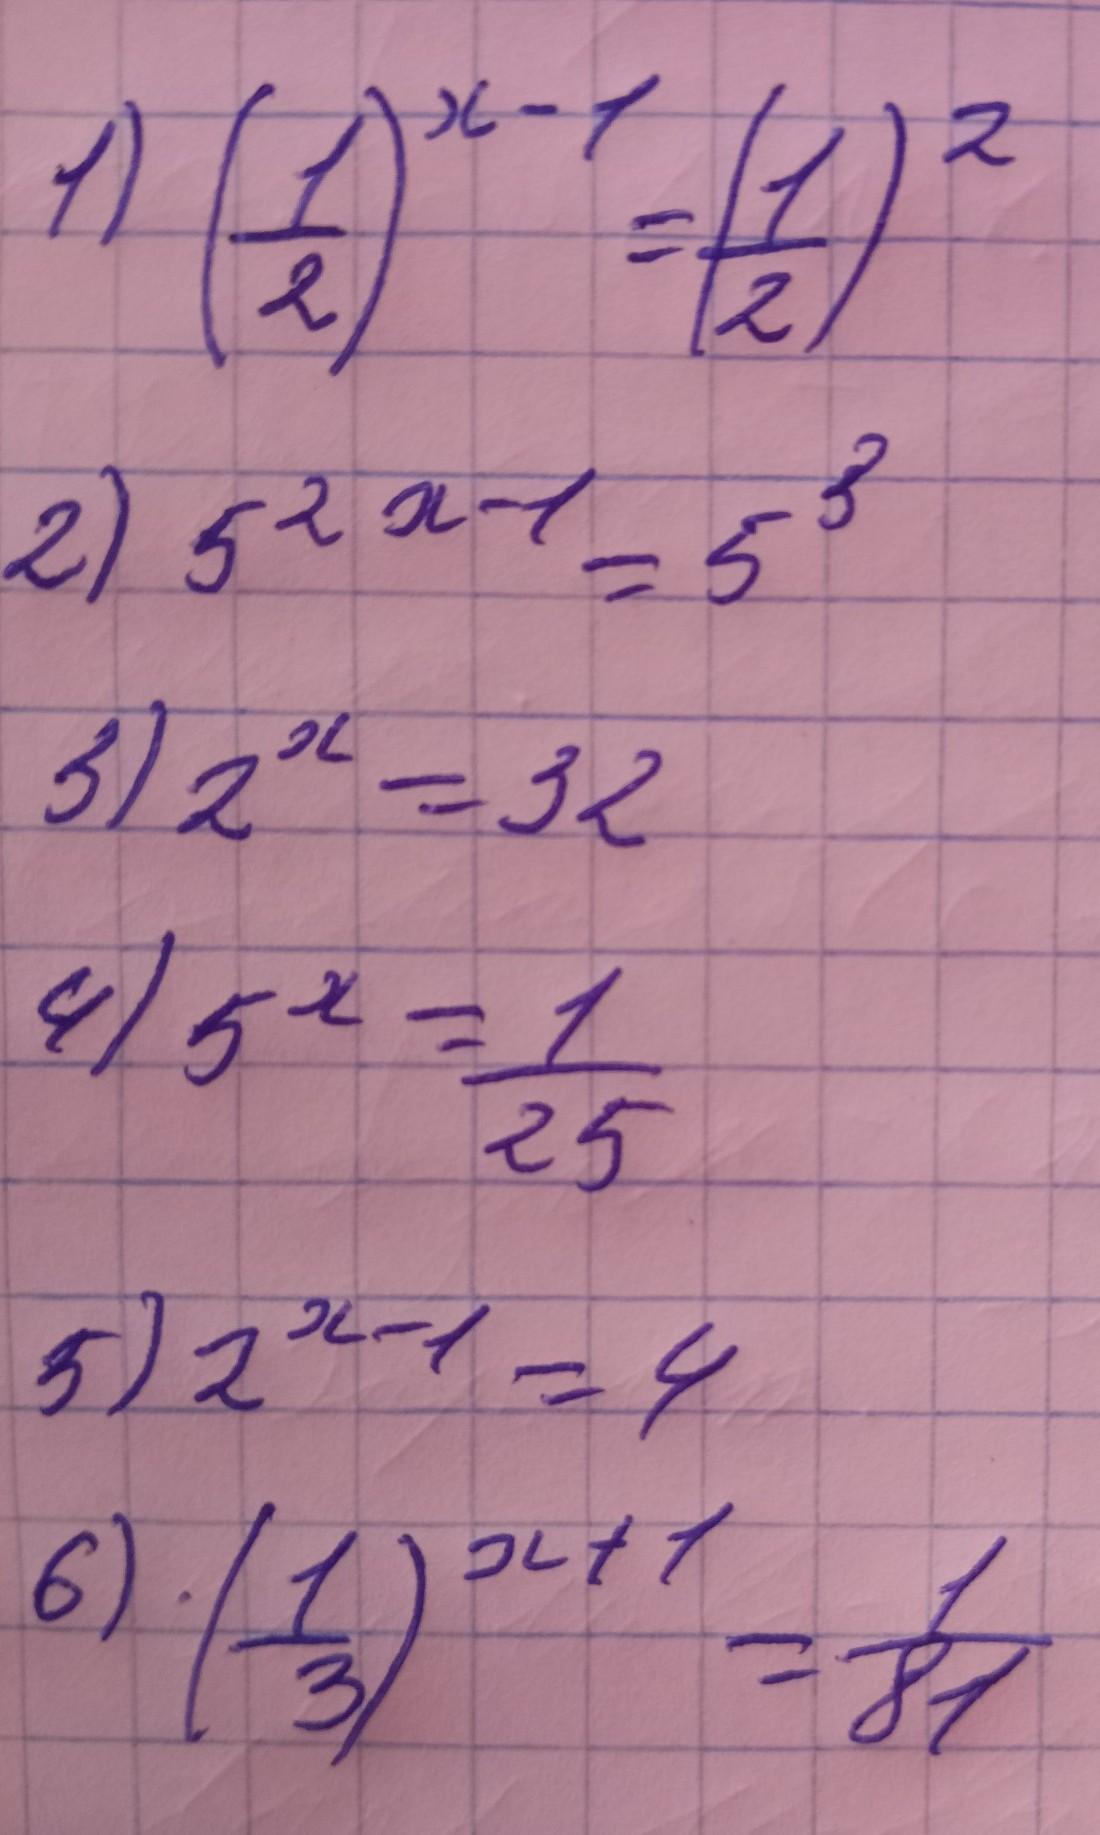 1) (1/2)^(x-1) = (1/2)^2
2) 5^(2x-1) = 5^3
3) 2^x = 32
4) 5^x = 1/25
5) 2^(x-1) = 4
6) (1/3)^(x+1) = 1/81